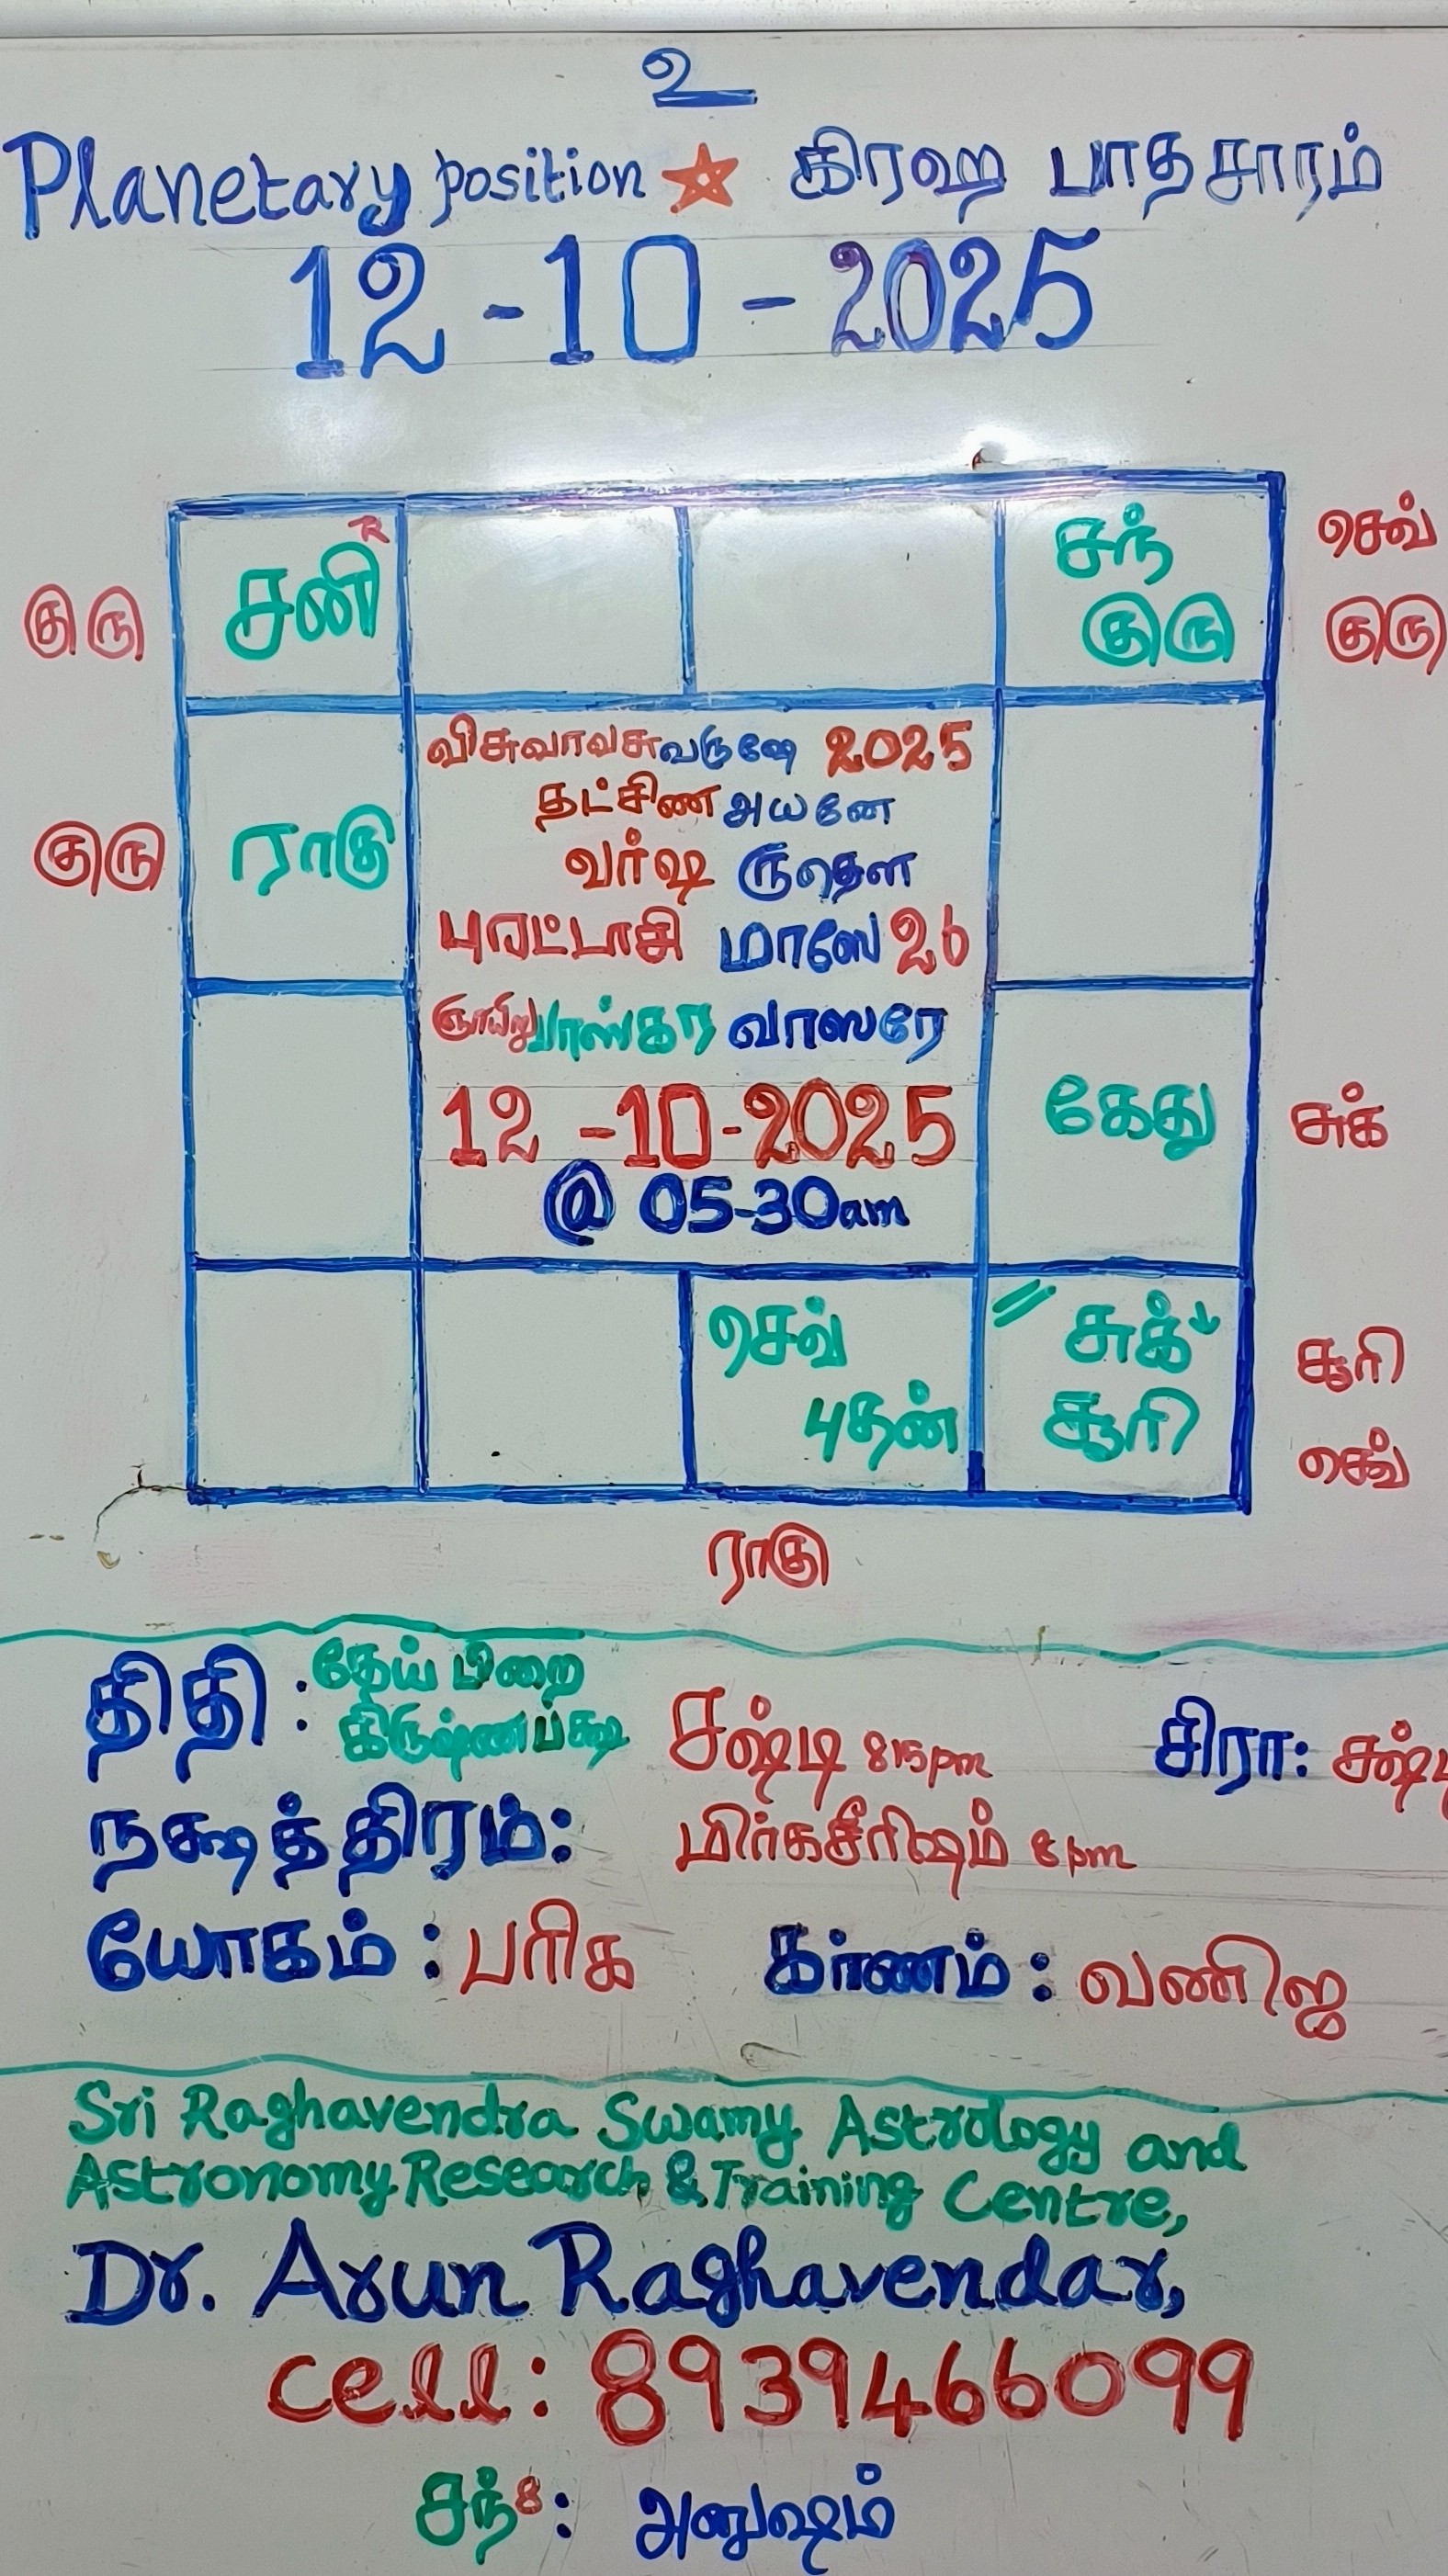 உ
Planetary position ☆ கிரஹ பாதசாரம்
12 - 10 - 2025
சனி R
சந்
குரு
செவ்
குரு
குரு
விசுவாவசுவருஷே 2025
தட்சிண அயனே
வர்ஷ ருதௌ
புரட்டாசி மாஸே 26
ஞாயிறு பாஸ்கர வாஸரே
12 -10-2025
@ 05-30am
குரு
ராகு
கேது
சுக்
செவ்
புதன்
// சுக் ↓
சூரி
சூரி
செவ்
ராகு
திதி : தேய் பிறை
கிருஷ்ணபக்ஷ
சஷ்டி 815pm
சிரா: சஷ்டி
நக்ஷத்திரம்: மிர்கசீரிஷம் 8pm
யோகம் : பரிக கர்ணம் : வணிஜ
Sri Raghavendra Swamy Astrology and
Astronomy Research & Training Centre,
Dr. Arun Raghavendar,
cell: 8939466099
சந்8: அனுஷம்